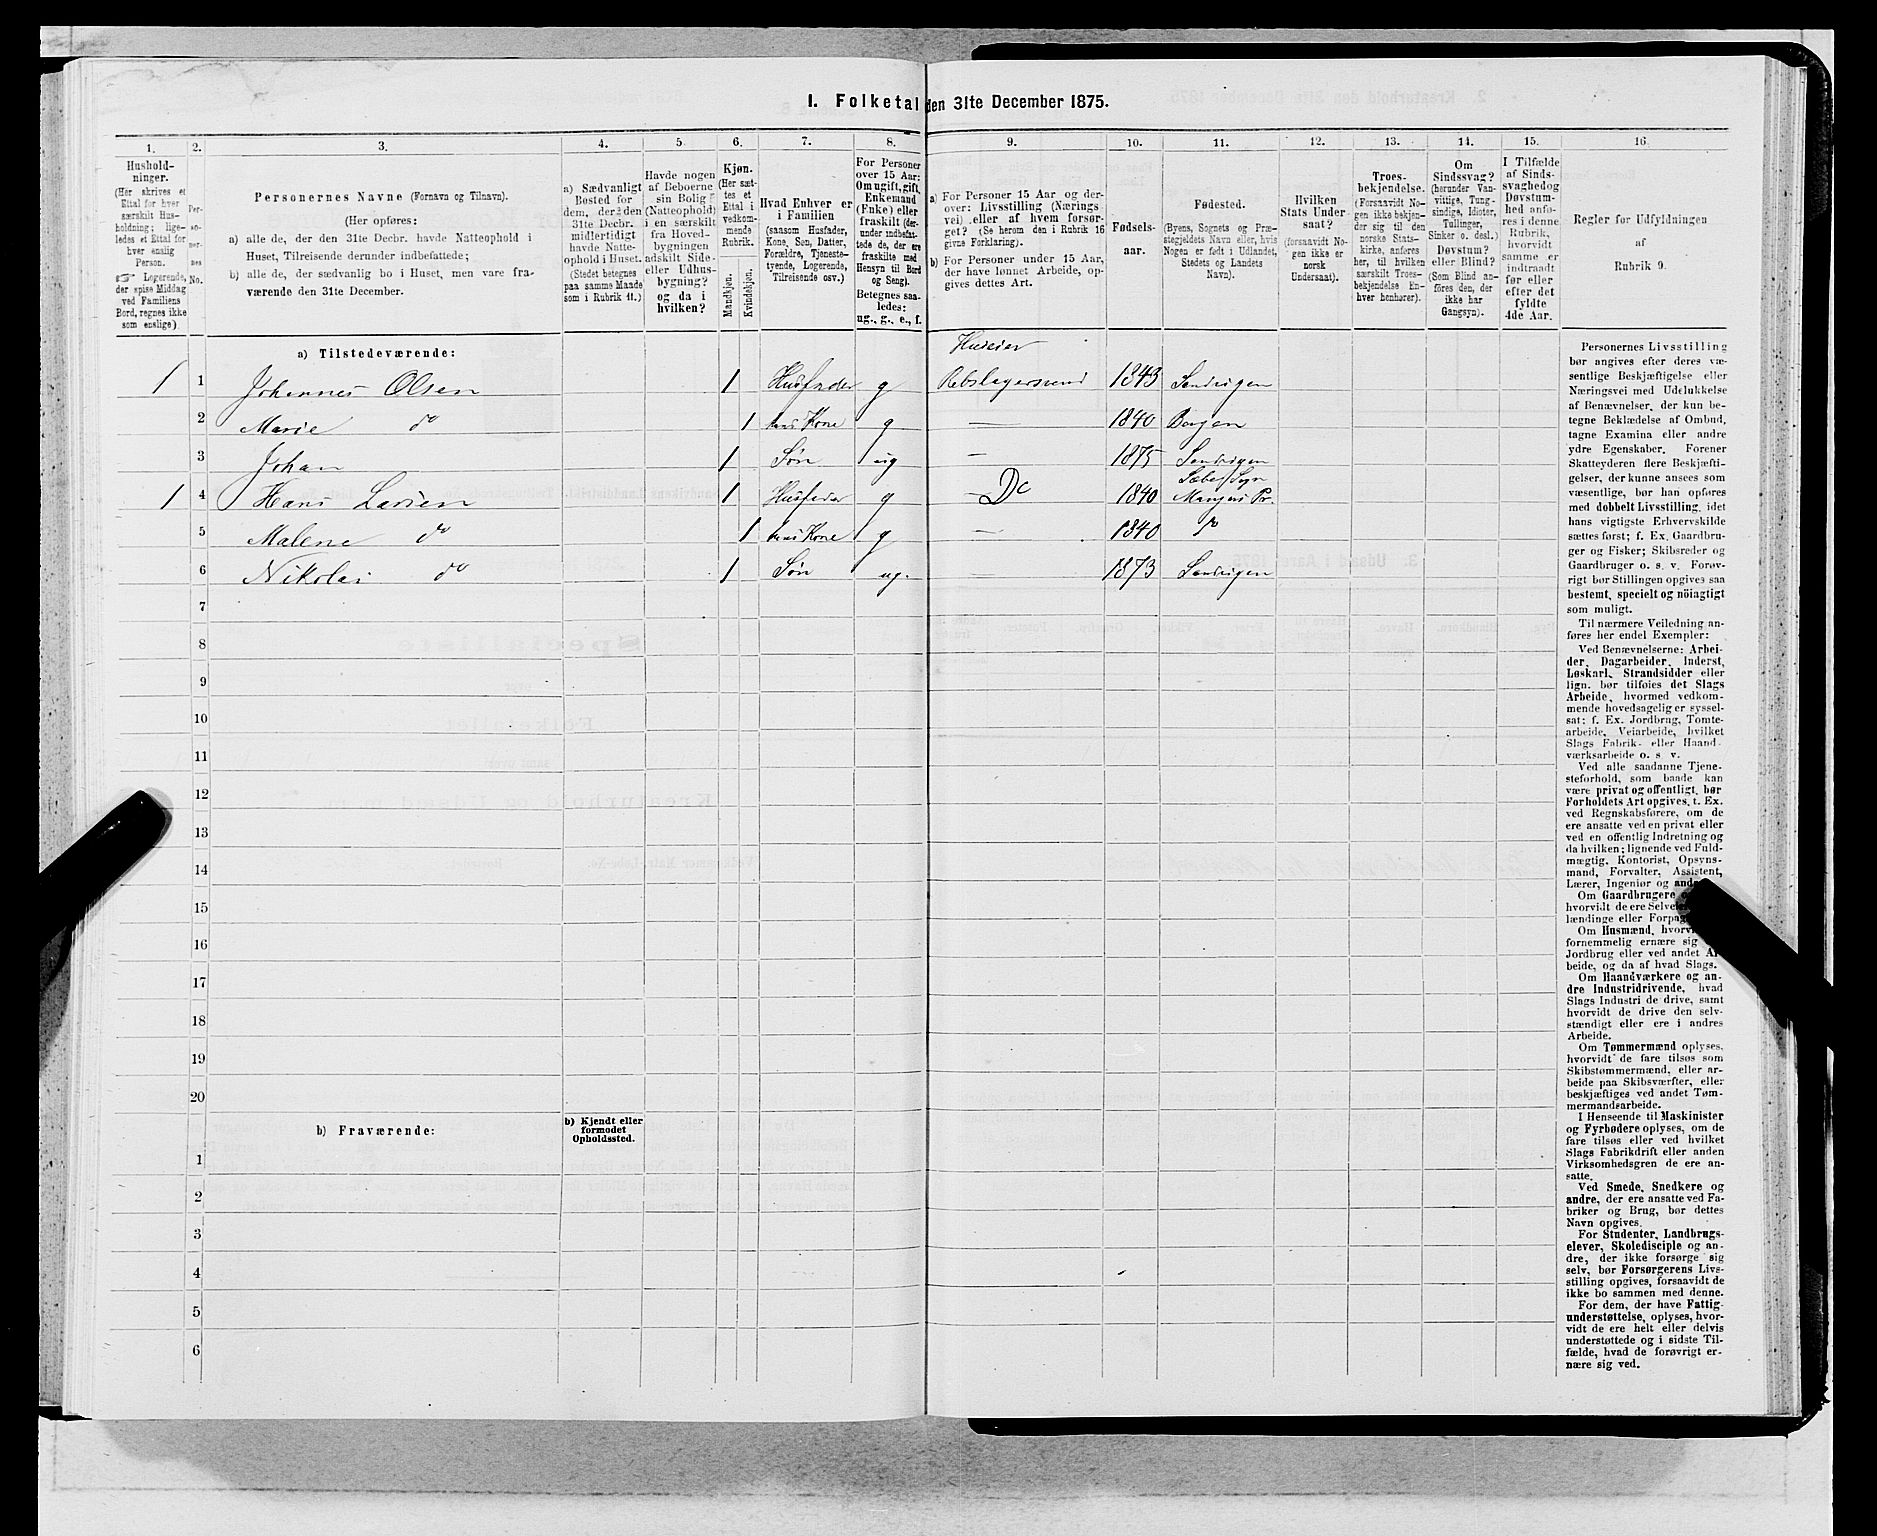 1. Folketal den 31te December 1875.
1.
Hushold-
ninger.
(Her skrives et
Ettal for hver
særskilt Hus-
holdning; lige-
ledes et Ettal for
hver enslig
Person.
Logerende,
der spise Middag
ved Familiens
Bord, regnes ikke
som enslige).
2.
Per-
so-
ner-
nes
No.
3.
Personernes Navne (Fornavn og Tilnavn).
(Her opføres:
a) alle de, der den 31te Decbr. havde Natteophold i
Huset, Tilreisende derunder indbefattede;
b) alle de, der sædvanlig bo i Huset, men vare fra-
værende den 31te December.
4.
a) Sædvanligt
Bosted for
dem, der den
31te Decbr.
midlertidigt
havde Natte-
ophold i Huset.
(Stedet betegnes
paa samme Maade
som i Rubrik 11.)
5.
Havde nogen
af Beboerne
sin Bolig
(Natteophold)
i en særskilt
fra Hoved-
bygningen
adskilt Side-
eller Udhus-
bygning?
og da i
hvilken?
6.
Kjøn.
(Her sæt-
tes et
Ettal i
vedkom-
mende
Rubrik.
Mandkjøn.
Kvindekjøn.
7.
Hvad Enhver er
i Familien
(saasom Husfader,
Kone, Søn, Datter,
Forældre, Tjeneste-
tyende, Logerende,
Tilreisende osv.)
8.
For Personer
over 15 Aar:
Om ugift, gift,
Enkemand
(Enke) eller
fraskilt (der-
under indbefat-
tede de, der ere
fraskilte med
Hensyn til Bord
og Seng).
Betegnes saa-
ledes:
ug., g., e., f.
9.
a) For Personer 15 Aar og der-
over: Livsstilling (Nærings-
vei) eller af hvem forsør-
get? (Se herom den i Rubrik 16
givne Forklaring).
b) For Personer under 15 Aar,
der have lønnet Arbeide, op-
gives dettes Art.
10.
Fødsels-
aar.
11.
Fødested.
(Byens, Sognets og Præ-
stegjeldets Navn eller, hvis
Nogen er født i Udlandet,
Stedets og Landets
Navn).
12.
Hvilken
Stats Under-
saat?
(forsaavidt No-
gen ikke er
norsk
Undersaat).
13.
Troes-
bekjendelse.
(Forsaavidt No-
gen ikke bekjen-
der sig til den
norske Stats-
kirke, anføres
her, til hvilken
særskilt Troes-
bekjendelse En-
hver henhører).
14.
Om
Sindssvag?
(herunder Van-
vittige, Tung-
sindige, Idioter,
Tullinger,
Sinker o. desl.)
Døvstum?
eller Blind?
(Som Blind an-
føres den, der
ikke har
Gangsyn).
15.
I Tilfælde
af Sinds-
svaghed og
Døvstum-
hed anfø-
res i denne
Rubrik,
hvorvidt
samme er
indtraadt
før eller
efter det
fyldte
4de Aar.
16.
Regler for Udfyldningen
af
Rubrik 9.
a) Tilstedeværende:
Huseier
1 1 Johannes Olsen 1 Husfader g Rebslagersvend 1843 Sandvigen
2 Marie do 1 hans Kone g — 1840 Bergen
3 Johan 1 Søn ug — 1875 Sandvigen
Sæbø Sgn
1 4 Hans Larsen 1 Husfader g — Do 1840 Mangers Pr.
5 Malene do 1 hans Kone g — 1840 do
6 Nikolai do 1 Søn ug. — 1873 Sandvigen
7
8
9
10
11
12
13
14
15
16
17
18
19
20
b) Fraværende:
b) Kjendt eller
formodet
Opholdssted.
1
2
3
4
5
6
Personernes Livsstilling
bør angives efter deres væ-
sentlige Beskjæftigelse eller
Næringsvei med Udelukkelse
af Benævnelser, der kun be-
tegne Beklædelse af Ombud,
tagne Examina eller andre
ydre Egenskaber. Forener
Skatteyderen flere Beskjæfti-
gelser, der kunne ansees som
væsentlige, bør han opføres
med dobbelt Livsstilling, idet
hans vigtigste Erhvervskilde
sættes først; f. Ex. Gaardbru-
ger og Fisker; Skibsreder og
Gaardbruger o. s. v. Forøv-
rigt bør Stillingen opgives saa
bestemt, specielt og nöiagtigt
som muligt.
Til nærmere Veiledning an-
føres her endel Exempler:
Ved Benævnelserne: Arbei-
der, Dagarbeider, Inderst,
Løskarl, Strandsidder eller
lign. bør tilføies det Slags
Arbeide, hvormed vedkom-
mende hovedsagelig er syssel-
sat; f. Ex. Jordbrug, Tomte-
arbeide, Veiarbeide, hvilket
Slags Fabrik- eller Haand-
værksarbeide o. s. v.
Ved alle saadanne Tjene-
steforhold, som baade kan
være privat og offentligt, bør
Forholdets Art opgives, t. Ex.
ved Regnskabsførere, om de
ere ansatte ved en privat eller
ved en offentlig Indretning og
da hvilken; lignende ved Fuld-
mægtig, Kontorist, Opsyns-
mand, Forvalter, Assistent,
Lærer, Ingeniør og
Om Gaardbrugere
hvorvidt de ere
lændinge eller
Om Husmænd,
fornemmelig ernære sig
Jordbrug eller ved andet Ar-
beide, og da af hvad Slags.
Om Haandværkere og an-
dre Industridrivende, hvad
Slags Industri de drive, samt
hvorvidt de drive den selv-
stændigt eller ere i andres
Arbeide.
Om Tømmermænd oplyses,
hvorvidt de fare tilsøs som
Skibstømmermænd, eller ar-
beide paa Skibsværfter, eller
beskjæftiges ved andet Tøm-
mermandsarbeide.
I Henseende til Maskinister
og Fyrbødere oplyses, om de
fare tilsøs eller ved hvilket
Slags Fabrikdrift eller anden
Virksomhedsgren de ere an-
satte.
Ved Smede, Snedkere og
andre, der ere ansatte ved Fa-
briker og Brug, bør dettes
Navn opgives.
For Studenter, Landbrugs-
elever, Skoledisciple og an-
dre, der ikke forsørge sig
selv, bør Forsørgerens Livs-
stilling opgives, forsaavidt de
ikke bo sammen med denne.
For dem, der have Fattig-
understøttelse, oplyses, hvor-
vidt de ere helt eller delvis
understøttede og i sidste Til-
fælde, hvad de forøvrigt er-
nære sig ved.